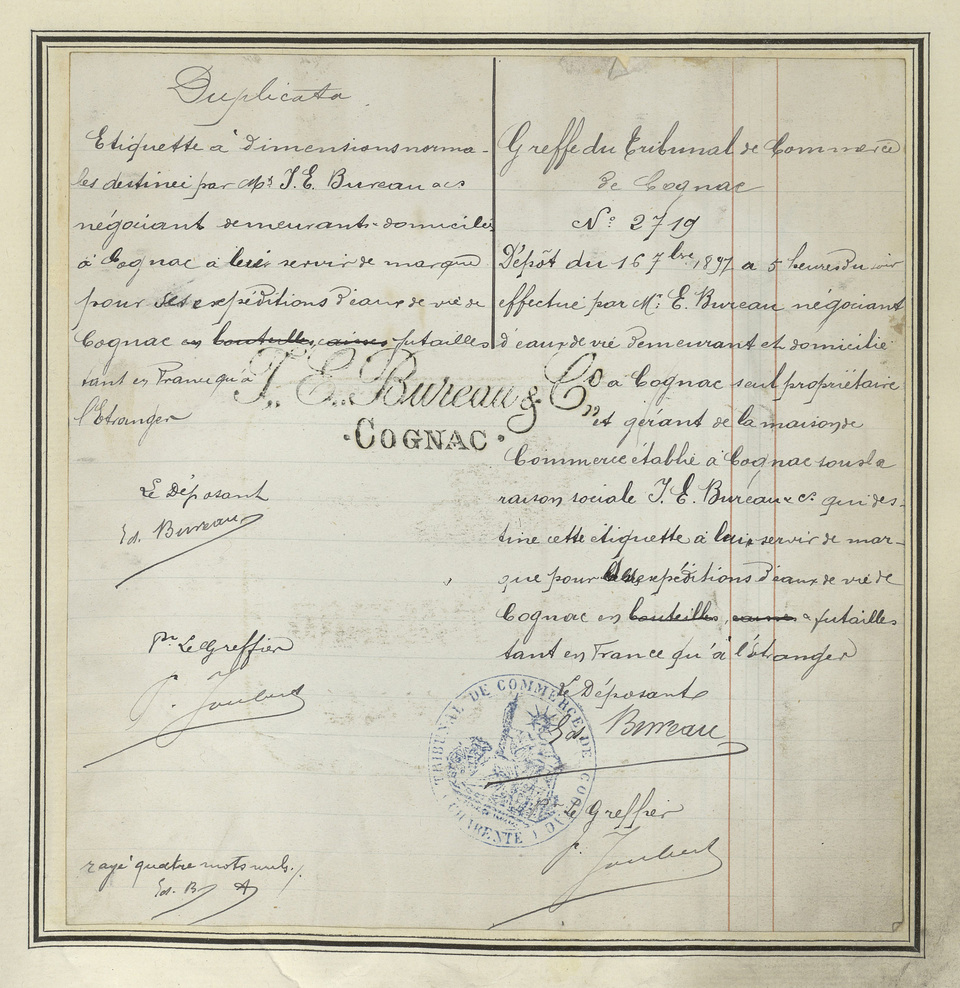 Duplicata
Etiquette à dimensions norma-
les destineé par Mr. J. E. Bureau &cs
négociant demeurant & domicilié
à Cognac à lui servir de marque
pour ses expéditions d'eaux de vie de
Cognac en bouteilles, caisses futailles
tant en France qu'à
l'Etranger
J. E. Bureau & Co
COGNAC
Le Déposant
Ed. Bureau
Pr. Le Greffier
P. Joubert
rayé quatre mots nuls ./.
Ed. B
Greffe du Tribunal de Commerce
de Cognac
No. 2719
Dépôt du 16 7bre 1897 a 5 heures du soir
effectué par Mr. E. Bureau négociant
d'eaux de vie demeurant et domicilié
a Cognac seul propriétaire
et gérant de la maison de
Commerce établie à Cognac sous la
raison sociale J. E. Bureau & Ce. qui des-
tine cette étiquette à lui servir de mar-
que pour expéditions d'eaux de vie de
Cognac en bouteilles, caisses & futailles
tant en France qu'à l'étranger
Le Déposant
Ed. Bureau
Le Greffier
P. Joubert
TRIBUNAL DE COMMERCE DE COGNAC
(CHARENTE)